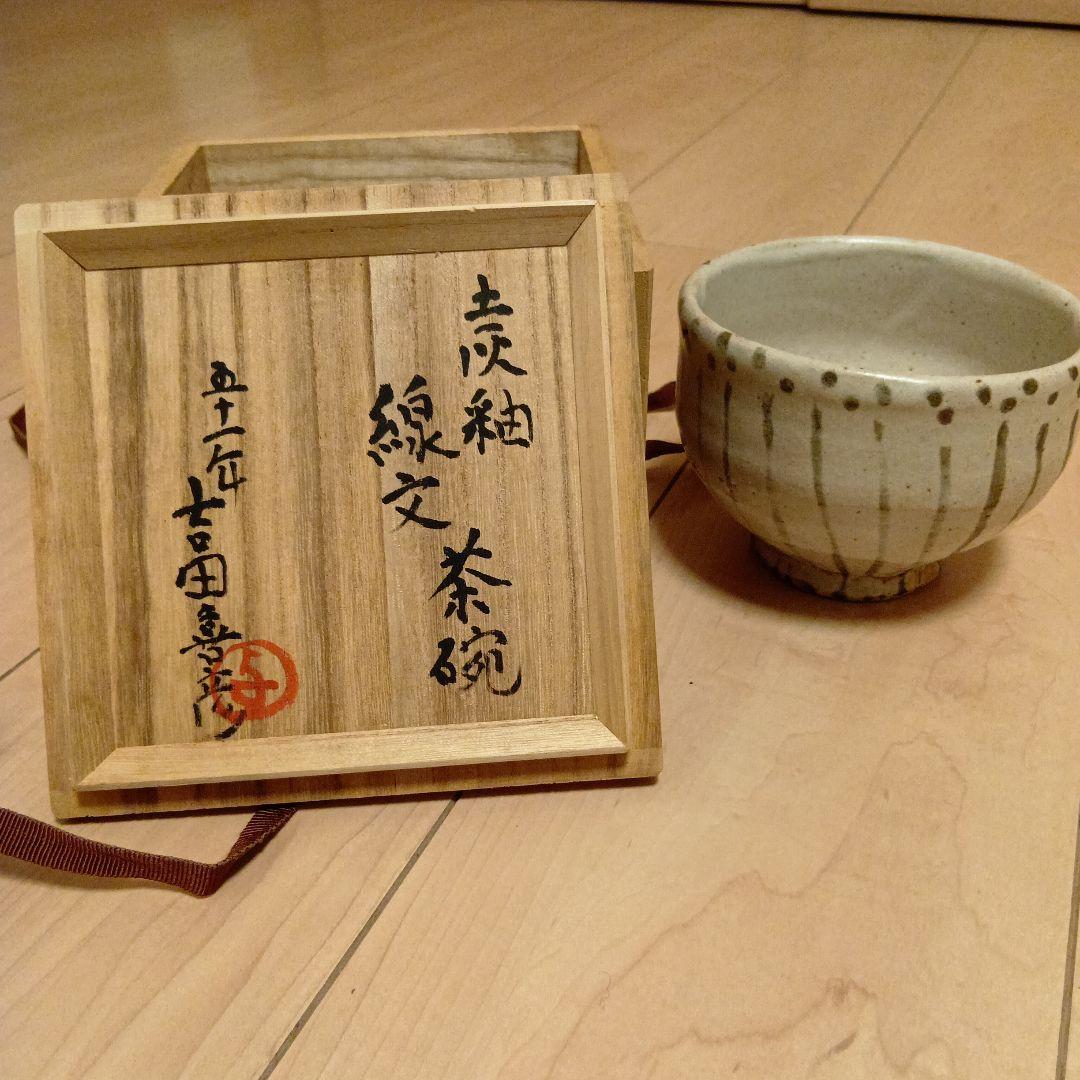 土灰釉
線文
茶碗
五十一年 吉田喜彦